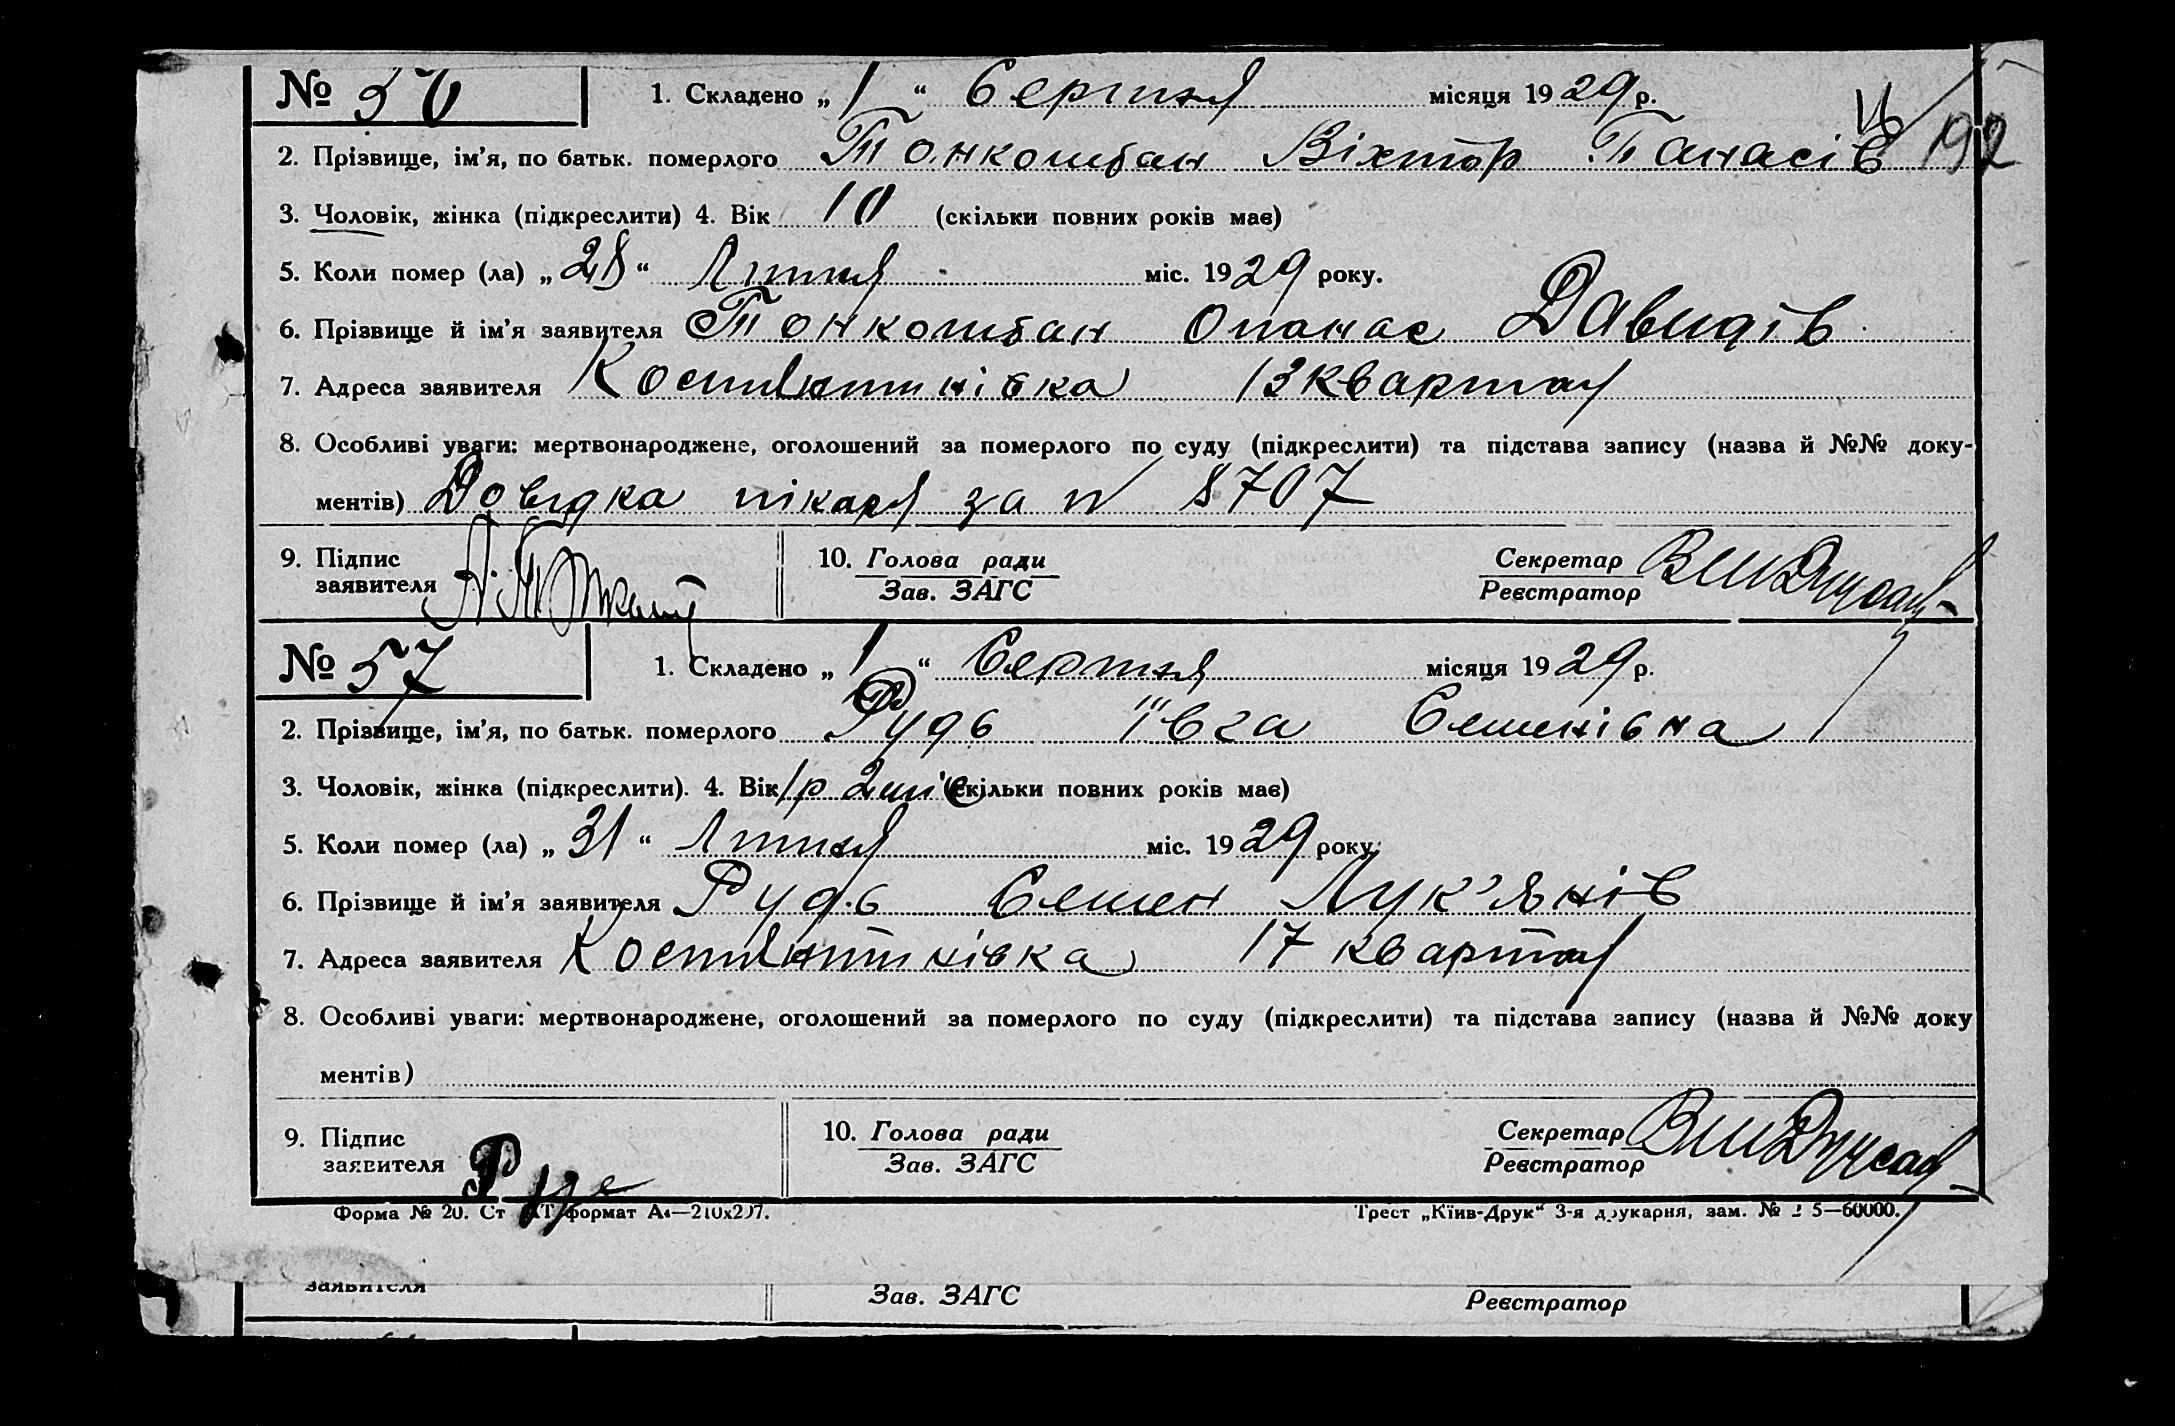 № 56 1. Складено „ 1 “ Серпня місяця 1929 р.
192
2. Прізвище, ім’я, по батьк. померлого Тонкошбан Віхтор Панасів
3. Чоловік, жінка (підкреслити) 4. Вік 10 (скільки повних років має)
5. Коли помер (ла) „ 28 “ Липня міс. 1929 року.
6. Прізвище й ім’я заявителя Тонкошбан Опанас Давидів
7. Адреса заявителя Костянтинівка 13 квартал
8. Особливі уваги: мертвонароджене, оголошений за померлого по суду (підкреслити) та підстава запису (назва й №№ доку-
ментів) Довидка лікаря за № 8707
9. Підпис заявителя 10. Голова ради Зав. ЗАГС Секретар Реєстратор
№ 57 1. Складено „ 1 “ Серпня місяця 1929 р.
2. Прізвище, ім’я, по батьк. померлого Рудь Ївга Семенівна
3. Чоловік, жінка (підкреслити). 4. Вік 1 р 2 міс (скільки повних років має)
5. Коли помер (ла) „ 31 “ Липня міс. 1929 року.
6. Прізвище й ім’я заявителя Рудь Семен Лук’янів
7. Адреса заявителя Костянтинівка 17 квартал
8. Особливі уваги: мертвонароджене, оголошений за померлого по суду (підкреслити) та підстава запису (назва й №№ доку
ментів)
9. Підпис заявителя 10. Голова ради Зав. ЗАГС Секретар Реєстратор
Форма № 20. Ст формат А4—210х297. Трест „Київ-Друк“ 3-я друкарня, зам. № 5—60000.
заявителя Зав. ЗАГС Реєстратор